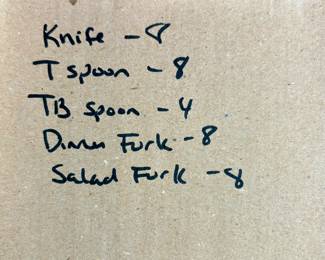 Knife - 8
T spoon - 8
TB spoon - 4
Dinner Furk - 8
Salad Furk - 8